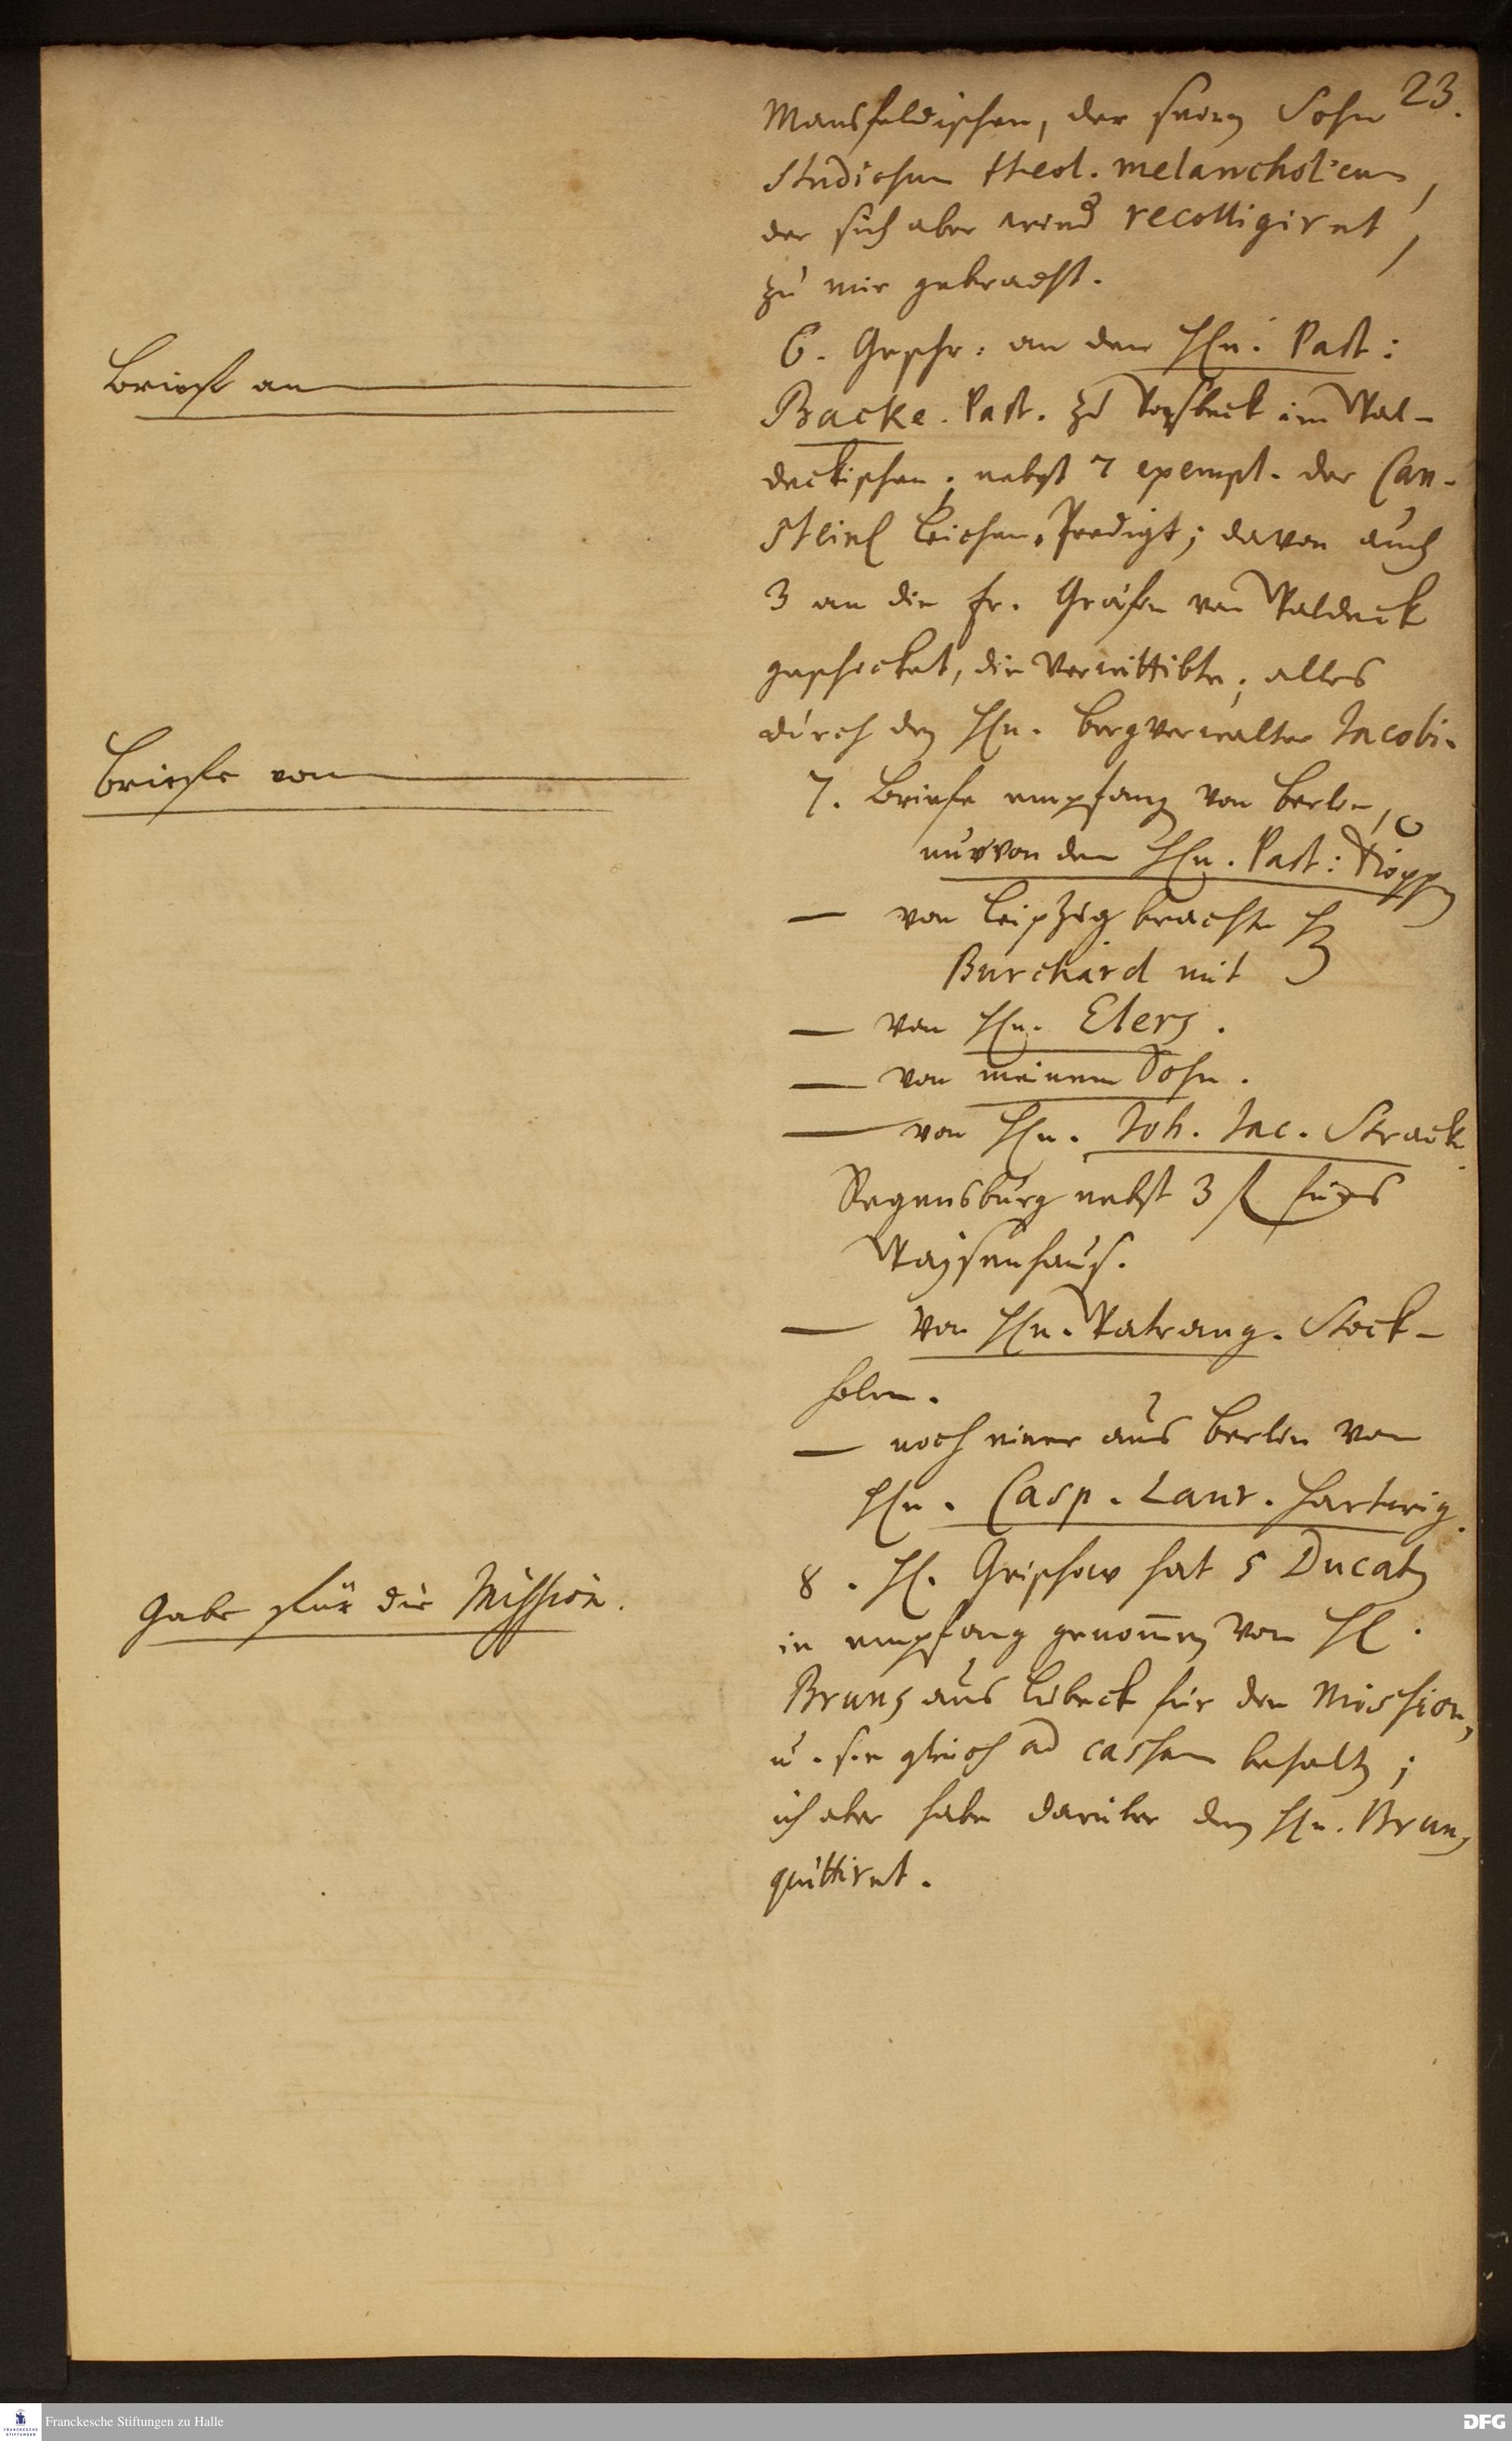 23.
Mansfeldischen, der seinen Sohn
Studiosum theol. melancholicum,
der sich aber wieder recolligiret,
zu mir gebracht.
Briefe an
6. Geschr: an den Hn. Past:
Backe. Past. zu im Wal-
deckischen; nebst 7 exempl. der Can-
stein Leichen-Predigt; davon auch
3 an die Fr. Gräfin von Waldeck
geschicket, die Verwittibte; alles
durch den Hn. Bergverwalter Jacobi.
Briefe von
7. Briefe empfangen von Berlin,
nur von dem Hn. Past:
— von Leipzig brachte H
Burchard mit
— von Hn. Elers.
— von meinem Sohn.
— von Hn. Joh. Jac. Strack
Regensburg nebst 3 f fürs
Waysenhaus.
— von Hn. Vatrang. Stock-
holm.
— noch einer aus Berlin von
Hn. Casp. Laur. Hartwig.
Gabe für die Mission.
8. H. Grischow hat 5 Ducaten
in empfang genommen von H.
Bruns aus Lübeck für die Mission,
u. sie gleich ad cassam behalten;
ich aber habe darüber dem Hn. Bruns
quittiret.
Franckesche Stiftungen zu Halle
DFG